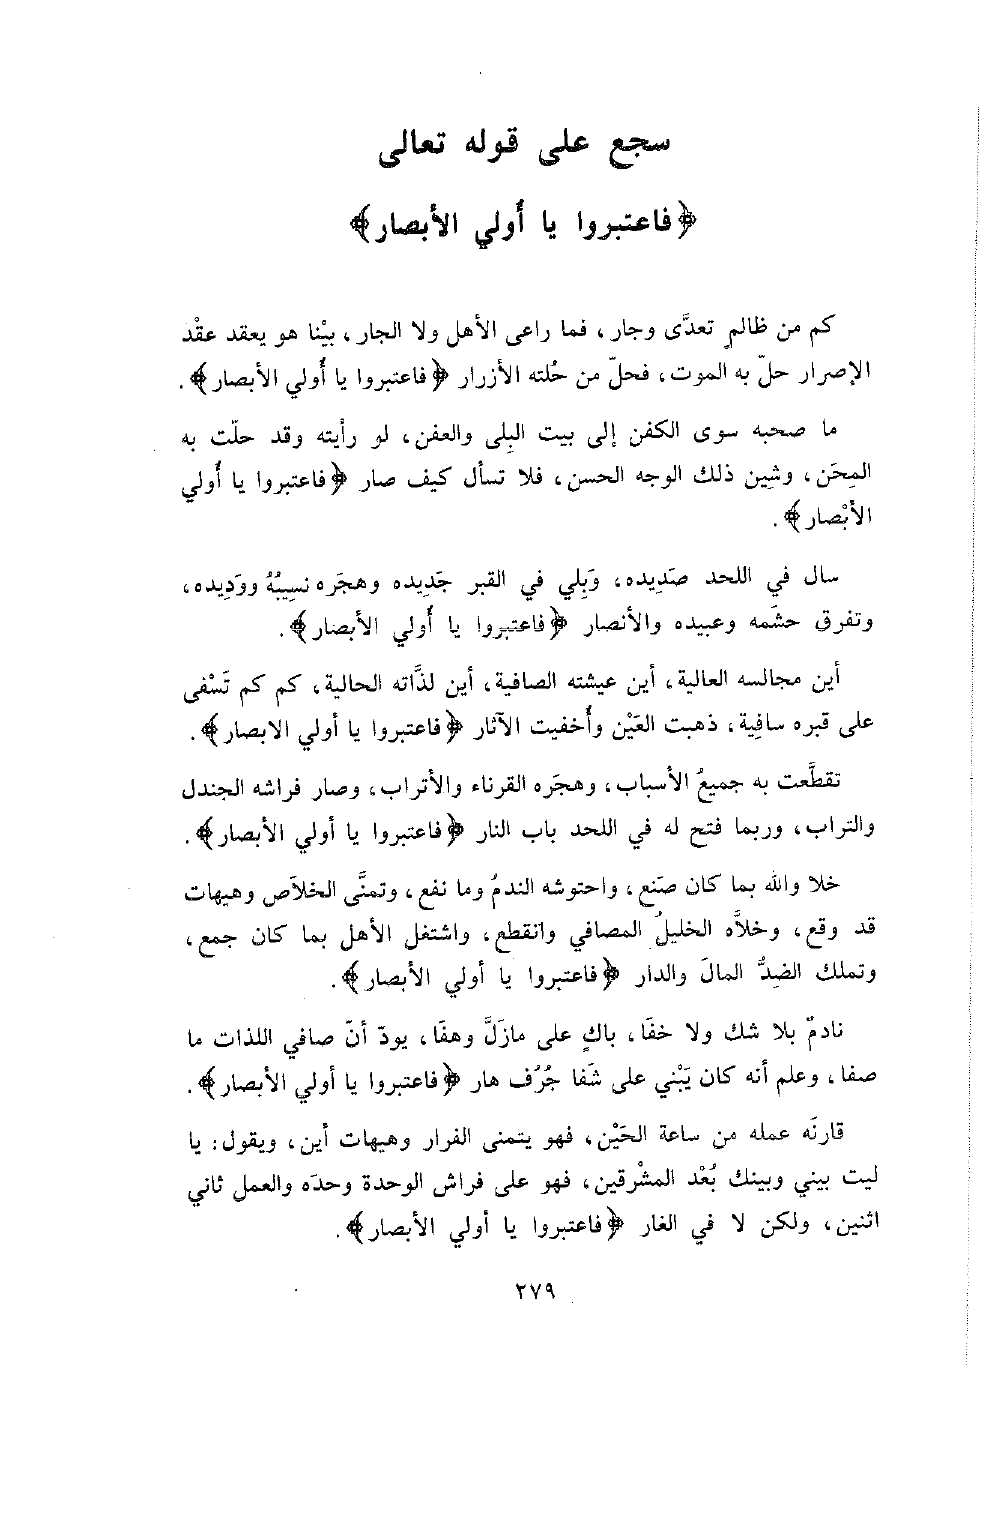 سجع على قوله تعالى
﴿فاعتبروا يا أُولي الأبصار﴾
كم من ظالمٍ تعدَّى وجار، فما راعى الأهل ولا الجار، بيْنا هو يعقد عقْد
الإصرار حلّ به الموت، فحلّ من حُلته الأزرار ﴿فاعتبروا يا أُولي الأبصار﴾.
ما صحبه سوى الكفن إلى بيت البِلى والعفن، لو رأيته وقد حلّت به
المِحَن، وشِين ذلك الوجه الحسن، فلا تسأل كيف صار ﴿فاعتبروا يا أُولي
الأبْصار﴾.
سال في اللحد صَدِيده، وَبِلي في القبر جَدِيده وهجَره نسِيبُهُ ووَدِيده،
وتفرق حشَمه وعبيده والأنصار ﴿فاعتبروا يا أُولي الأبصار﴾.
أين مجالسه العالية، أين عيشته الصافية، أين لذَّاته الحالية، كم كم تَسْفى
على قبره سافِية، ذهبت العَيْن وأُخفيت الآثار ﴿فاعتبروا يا أولي الابصار﴾.
تقطَّعت به جميعُ الأسباب، وهجَره القرناء والأتراب، وصار فراشه الجندل
والتراب، وربما فتح له في اللحد باب النار ﴿فاعتبروا يا أولي الأبصار﴾.
خلا والله بما كان صَنع، واحتوشه الندمُ وما نفع، وتمنَّى الخلاَص وهيهات
قد وقع، وخلاَّه الخليلُ المصافي وانقطع، واشتغل الأهل بما كان جمع،
وتملك الضِدُّ المالَ والدار ﴿فاعتبروا يا أولي الأبصار﴾.
نادمٌ بلا شك ولا خفَا، باكٍ على مازَلَّ وهفَا، يودّ أنّ صافي اللذات ما
صفا، وعلم أنه كان يَبْني على شَفا جُرُف هار ﴿فاعتبروا يا أولي الأبصار﴾.
قارنَه عمله من ساعة الحَيْن، فهو يتمنى الفرار وهيهات أين، ويقول: يا
ليت بيني وبينك بُعْد المشْرقين، فهو على فراش الوحدة وحدَه والعمل ثاني
اثنين، ولكن لا في الغار ﴿فاعتبروا يا أولي الأبصار﴾.
٢٧٩